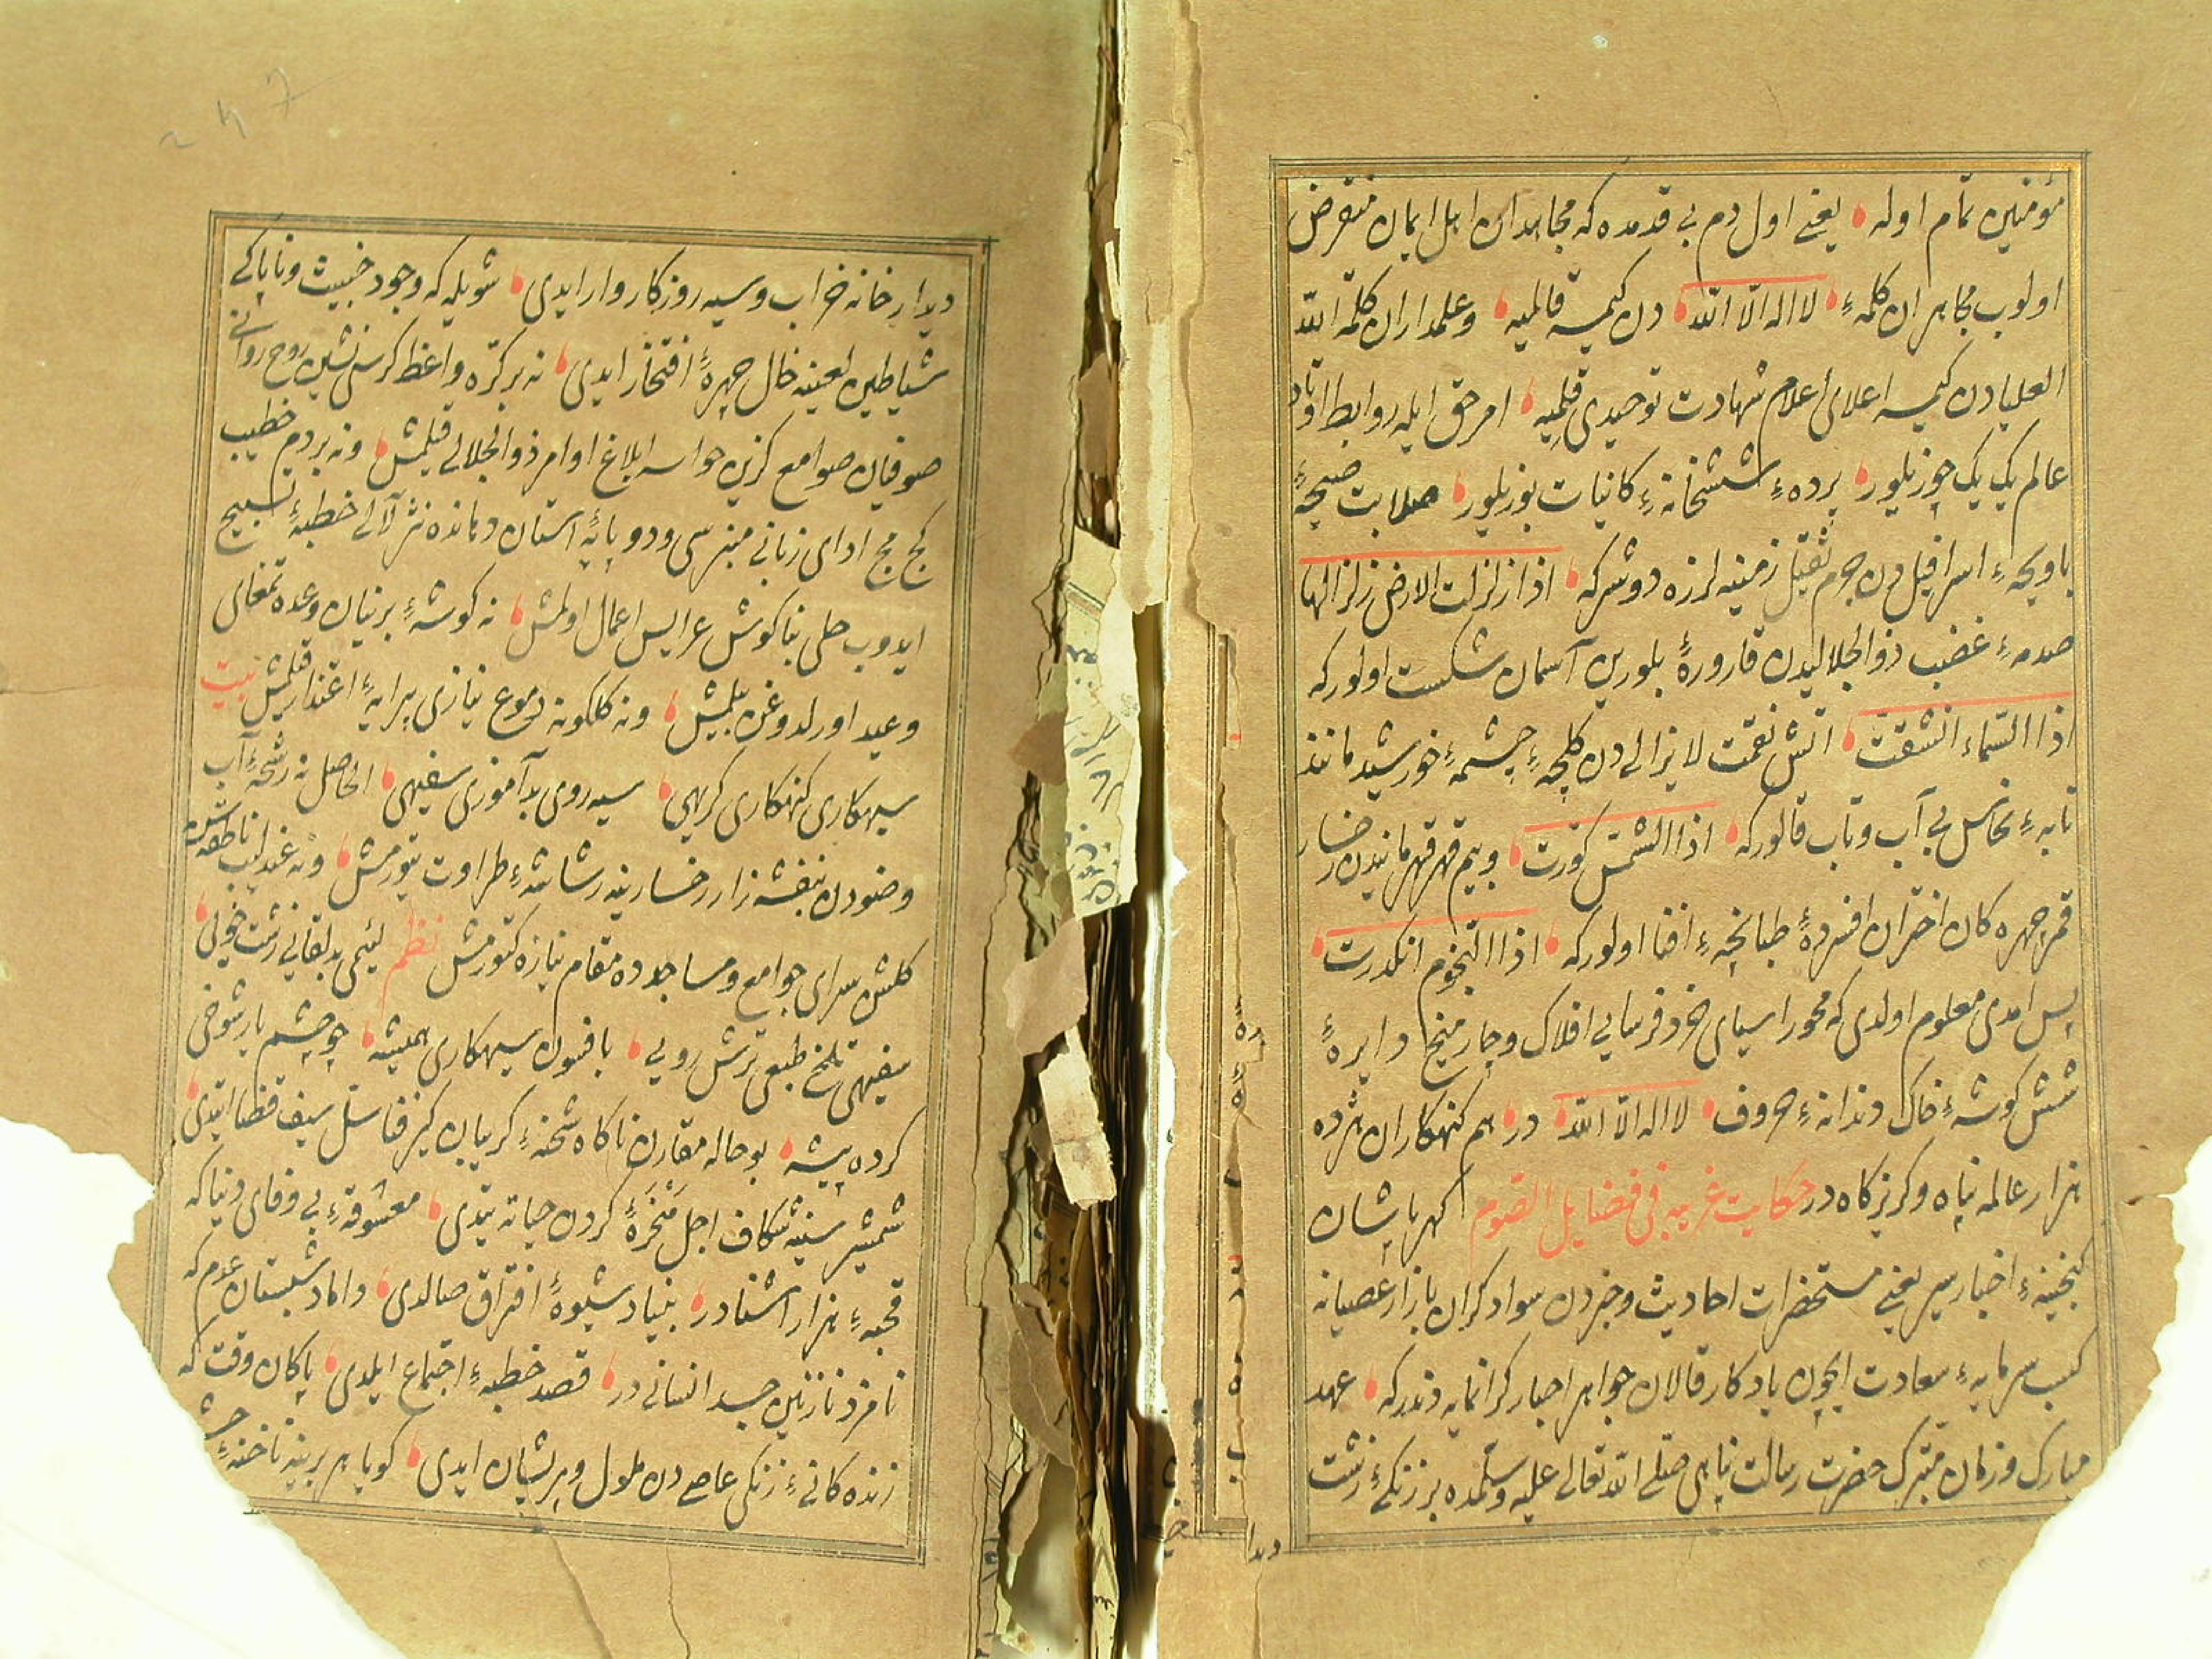 مؤمنین تمام اوله یعنی اول دم بی قدمده که مجاهدان اهل ایمان منقرض
اولوب مجاهران کلمهٔ لا اله الا الله دن کیمسه قالمیه وعلمداران کلمة الله
العلیادن کیمسه اعلای اعلام شهادت توحیدی قلمیه امر حق ایله روابط اوتاد
عالم یک یک چوزیلور پرده ششخانهٔ کائنات بوزیلور صلابت صیحهٔ
اسرافیل دن جرم ثقیل زمینه لرزه دوشر که اذا زلزلت الارض زلزالها
صدمهٔ غضب ذوالجلالیدن قارورهٔ بلورین آسمان شکست اولور که
اذا السماء انشقت اتش نقمت لا یزالی دن کلچهٔ چشمهٔ خورشید مانند
تابهٔ نحاس بی آب وتاب قالور که اذا الشمس کورت وبیم قهر قهرمانیدن رخسار
قمر چهره کان اختران افسردهٔ طبانچهٔ افنا اولور که اذا النجوم انکدرت
پس امدی معلوم اولدی که محور اسیای خرد فرسایی افلاک وچار میخ دایرهٔ
شش کوشهٔ خاک دندانهٔ حروف لا اله الا الله در هم کنهکاران هژده
هزار عالمه پناه وکریزکاه در حکایت غریبه فی فضایل الصوم کهر پاشان
کنجینهٔ اخبار سیر یعنی مستحضرات احادیث وخبردن سوادکران بازار عصیانه
کسب سرمایهٔ سعادت ایچون یادکار قالان جواهر اخبار کرانمایه دندر که عهد
مبارک وزمان متبرک حضرت رسالت پناهی صلی الله تعالی علیه وسلمده بر زنکیٔ زشت
دیدا
دیدار خانه خراب وسیه روزکار وار ایدی شویله که وجود خبیث وناپاکی
شیاطین لعینه خال چهرهٔ افتخار ایدی نه بر کره واعظ کرسی نشین روح روانی
صوفیان صوامع کزین حواسه ابلاغ اوامر ذوالجلالی قیلمش ونه بر دم خطیب
کج مج ادای زبانی منبر سی ودو پایهٔ استان دمانده نثر لآلی خطبهٔ تسبیح
ایدوب حلی بناکوش عرایس اعمال اولمش نه کوشهٔ برنیان وعده تمغای
وعید اورلدوغن بلمش ونه کلکونه دموع نیازی پیرایهٔ اعتذار قیلمش بیت
سیهکاری کنهکاری کریهی سیه روی بدآموزی سفیهی الحاصل نه رشحهٔ آب
وضودن بنفشه زار رخسارینه رشاشهٔ طراوت یتورمش ونه عندلیب ناطقه سن
کلشن سرای جوامع ومساجدده مقام نیازه کتورمش نظم لئیمی بدلقایی زشت خویی
سفیهی تلخ طبعی ترش رویی بافسون سیهکاری همیشه چو چشم یار شوخی
کرده پیشه بو حاله مقارن ناکاه شحنهٔ کریبان کیر فنا سل سیف قضا ایتدی
شمشیر سینه شکاف اجل منخرهٔ کردن حیاته یتدی معشوقهٔ بی وفای دنیا که
قحبهٔ هزار اشنادر بنیاد شیوهٔ افتراق صالدی داماد شبستان عدم که
نامزد نازنین جسد انسانی در قصد خطبهٔ اجتماع ایلدی پاکان وقت که
زنده کانیٔ زنکی عاصی دن ملول وپریشان ایدی کویا هر برینه ناخنهٔ